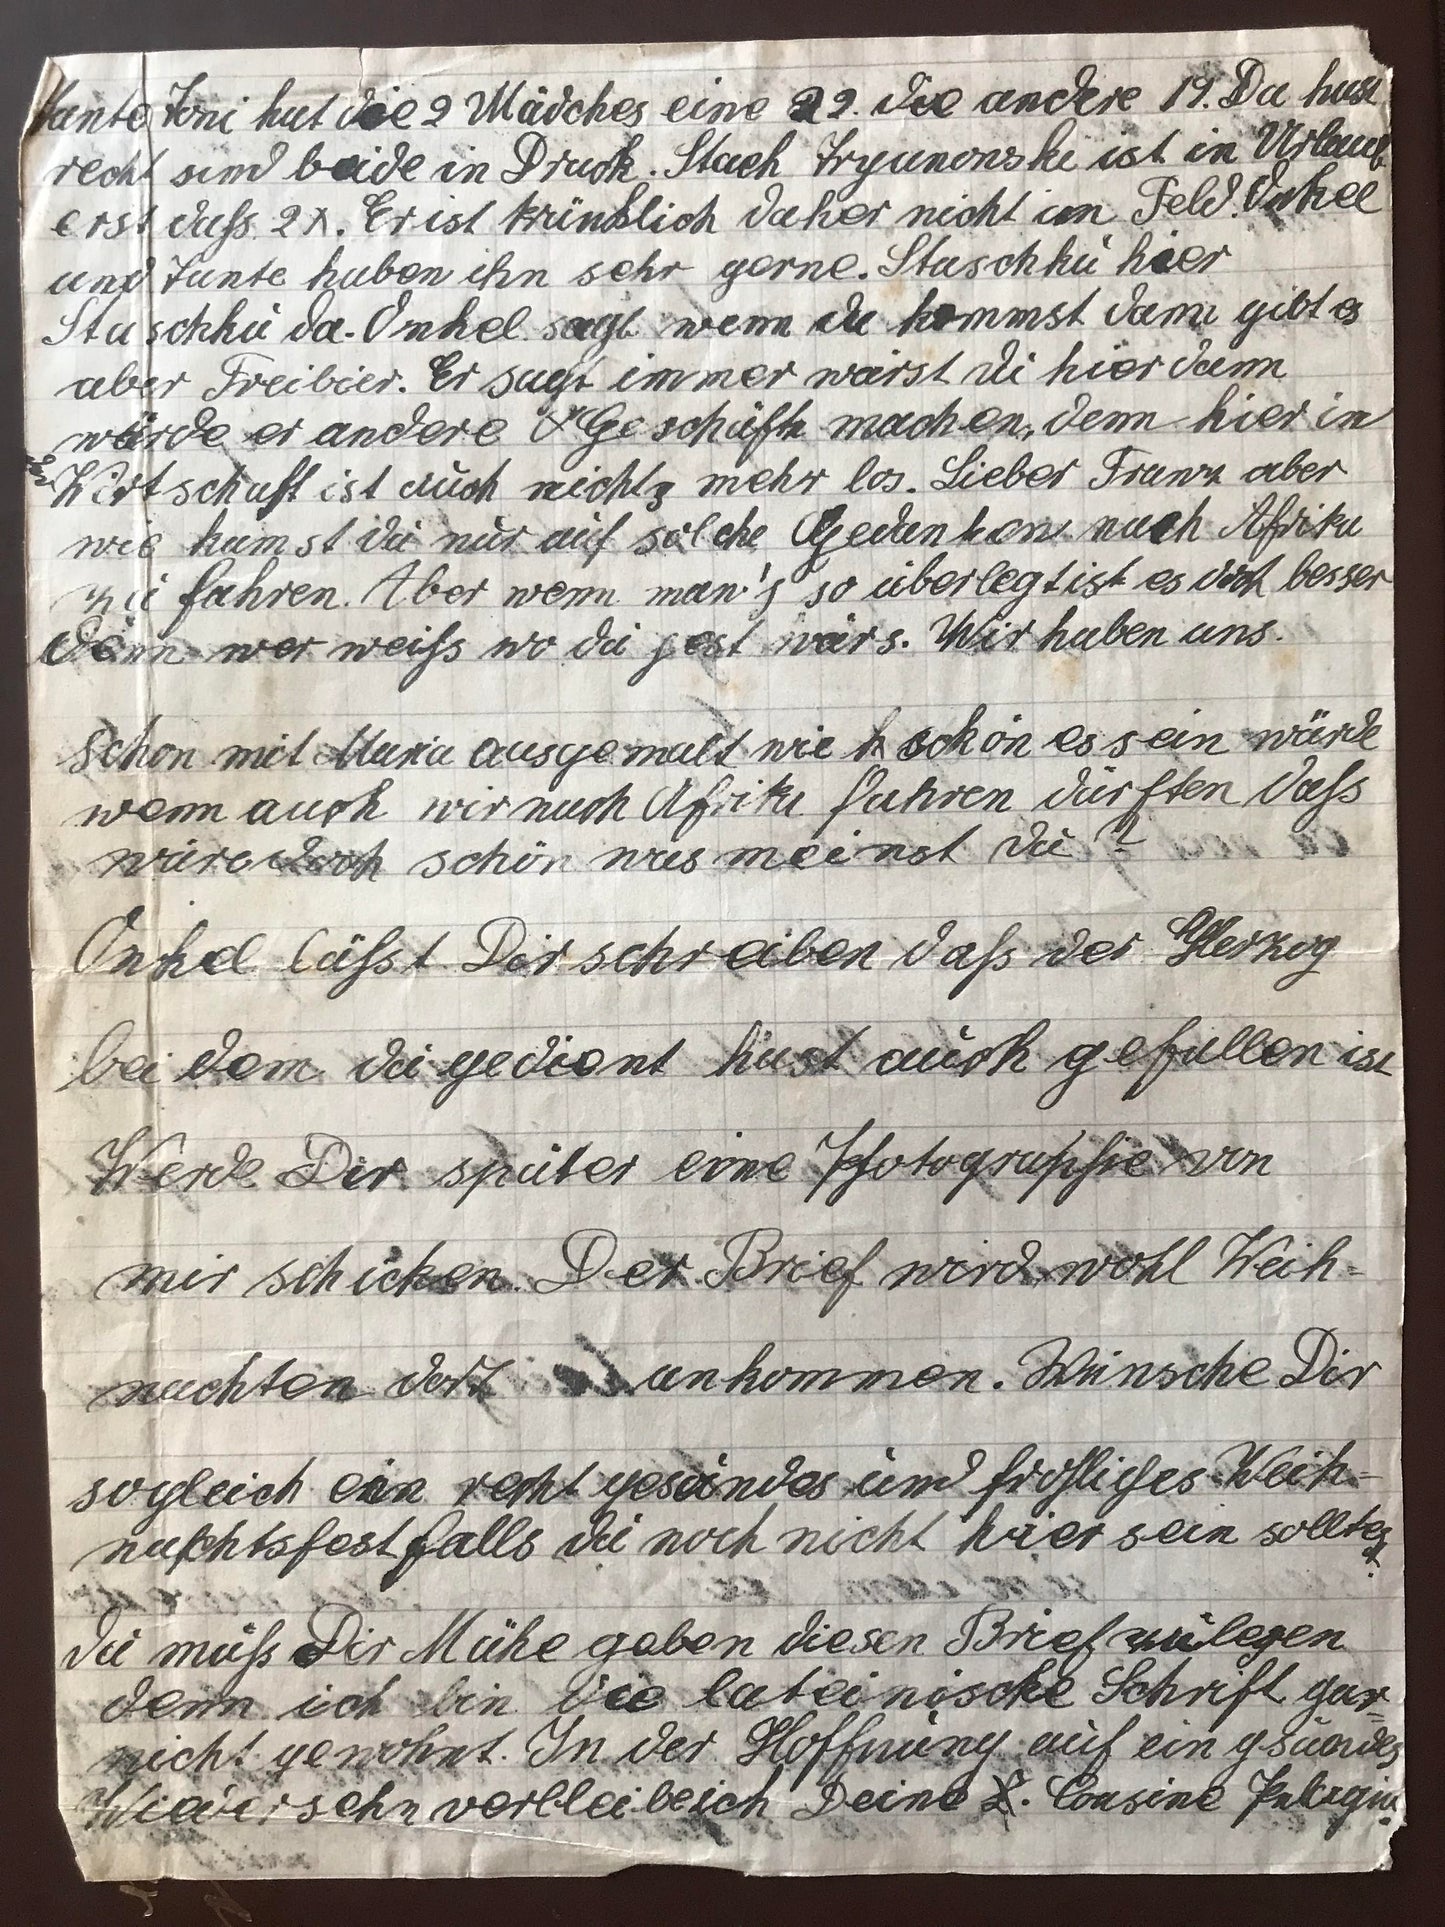 Tante Toni hat die 2 Mädches eine 22. die andere 19. Du hast
recht sind beide in Druck. Stach Tryanowski ist in Urlaub
erst dass 2x. Er ist kränklich daher nicht im Feld. Onkel
und Tante haben ihn sehr gerne. Staschkü hier
Staschkü da. Onkel sagt wenn du kommst dann gibt es
aber Freibier. Er sagt immer wärst du hier dann
würde er andere Geschäfte machen, denn hier in
Wirtschaft ist auch nichts mehr los. Lieber Franz aber
wie kamst du nur auf solche Gedanken nach Afrika
zu fahren. Aber wenn man's so überlegt ist es doch besser
denn wer weiss wo du jest wärs. Wir haben uns.
schon mit Maria ausgemalt wie schön es sein würde
wenn auch wir nach Afrika fahren dürften dass
wäre doch schön was meinst du?
Onkel lässt Dir schreiben dass der Herzog
bei dem du gedient hast auch gefallen ist
Werde Dir später eine Photographie von
mir schicken. Der Brief wird wohl Weih-
nachten dort ankommen. Wünsche Dir
sogleich ein recht gesundes und fröhliches Weih-
nachtsfest falls du noch nicht hier sein solltest.
Du müss Dir Mühe geben diesen Brief zu lesen
denn ich bin die lateinische Schrift gar-
nicht gewohnt. In der Hoffnung auf ein gsundes
Wiedersehn verbleibe ich Deine L. Cousine Pelagia.